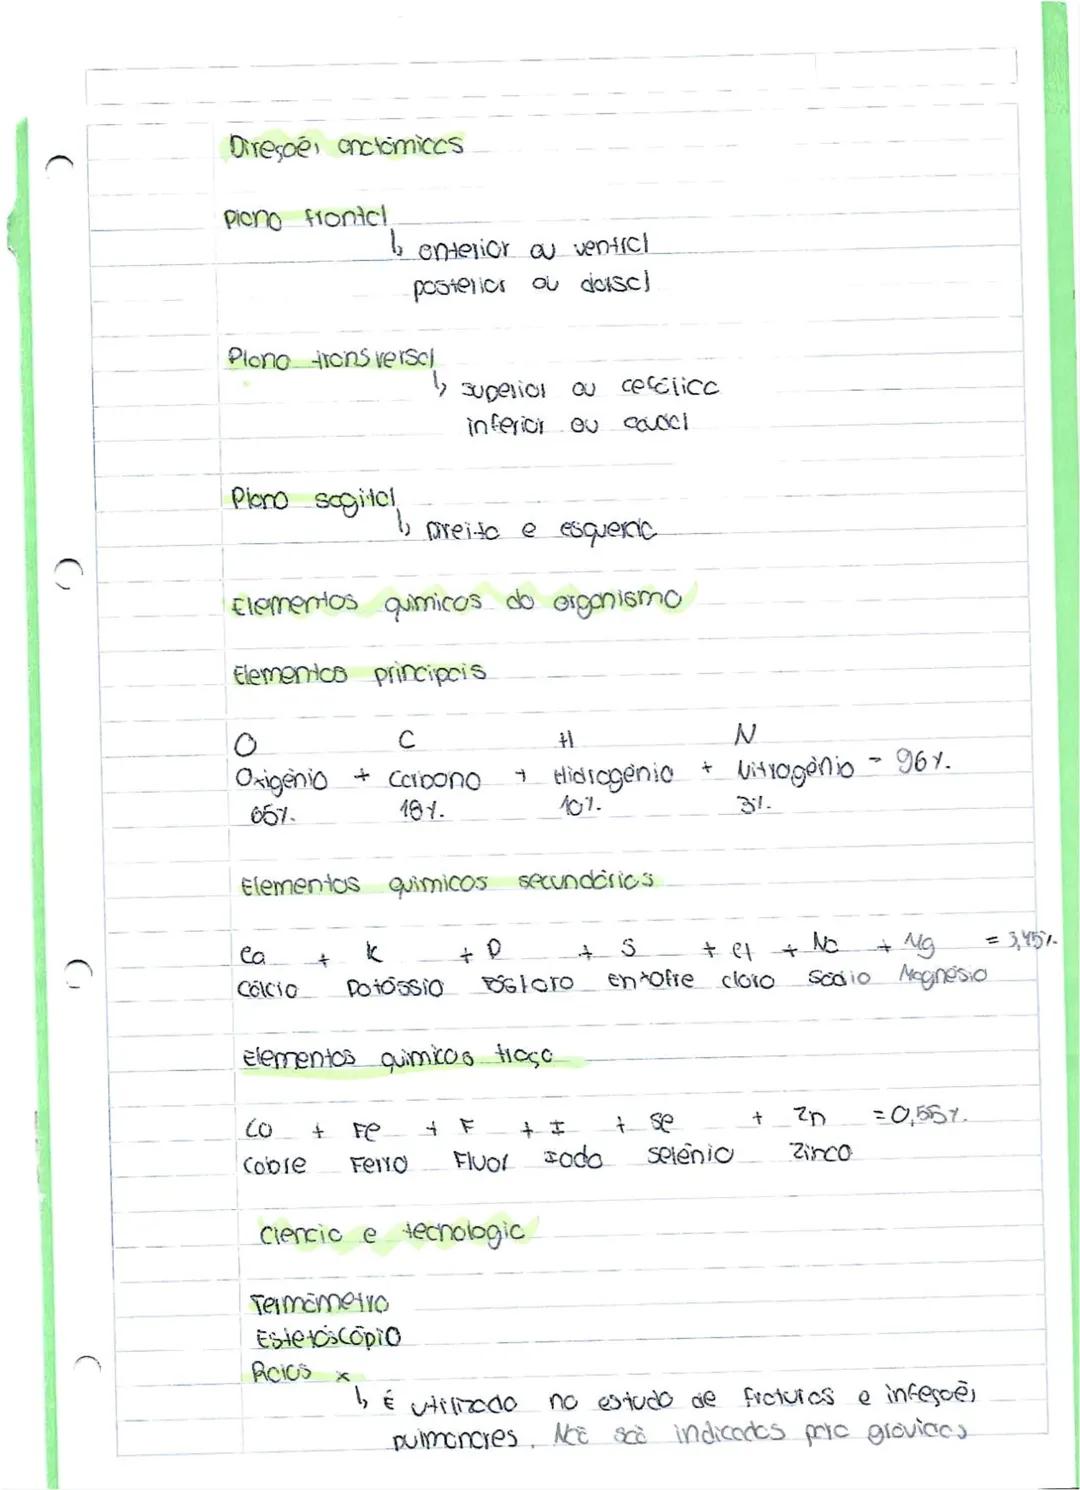 Direções anatómicas
Plano frontal
↳ anterior ou ventral
posterior ou dorsal
Plano transversal
↳ superior ou cefálica
inferior ou caudal
Plano sagital
↳ Direita e esquerda
Elementos quimicos do organismo
Elementos principais
O C H N
Oxigénio + Carbono + Hidrogénio + Nitrogénio = 96%.
65%. 18%. 10%. 3%.
Elementos quimicos secundários
Ca + K + P + S + Cl + Na + Mg = 3,45%.
Cálcio Potássio Fósforo Enxofre cloro Sódio Magnésio
Elementos quimicos traço
Co + Fe + F + I + Se + Zn = 0,55%.
Cobre Ferro Fluor Iodo Selénio Zinco
Ciencia e tecnologia
Termómetro
Estetoscópio
Raios x
↳ É utilizado no estudo de fraturas e infeções
pulmonares. Não são indicados para grávidas